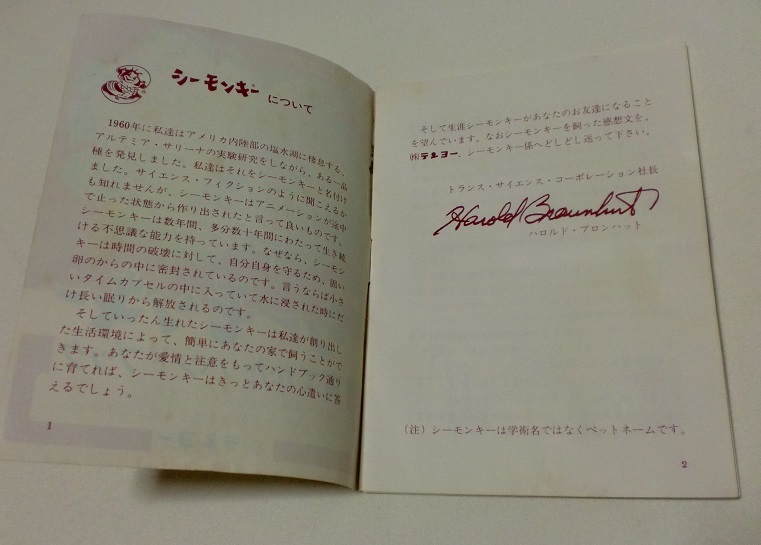 シーモンキー について
1960年に私達はアメリカ内陸部の塩水湖に棲息する、
アルテミア・サリーナの実験研究をしながら、ある一品
種を発見しました。私達はそれをシーモンキーと名付け
ました。サイエンス・フィクションのように聞こえるか
も知れませんが、シーモンキーはアニメーションが途中
で止った状態から作り出されたと言って良いものです。
シーモンキーは数年間、多分数十年間にわたって生き続
ける不思議な能力を持っています。なぜなら、シーモン
キーは時間の破壊に対して、自分自身を守るため、固い
卵のからの中に密封されているのです。言うならば小さ
いタイムカプセルの中に入っていて水に浸された時にだ
け長い眠りから解放されるのです。
そしていったん生れたシーモンキーは私達が創り出し
た生活環境によって、簡単にあなたの家で飼うことがで
きます。あなたが愛情と注意をもってハンドブック通り
に育てれば、シーモンキーはきっとあなたの心遣いに答
えるでしょう。
1
そして生涯シーモンキーがあなたのお友達になること
を望んでいます。なおシーモンキーを飼った感想文を、
㈱テンヨー、シーモンキー係へどしどし送って下さい。
トランス・サイエンス・コーポレーション社長
Harold Braunhut
ハロルド・ブロンハット
(注) シーモンキーは学術名ではなくペットネームです。
2